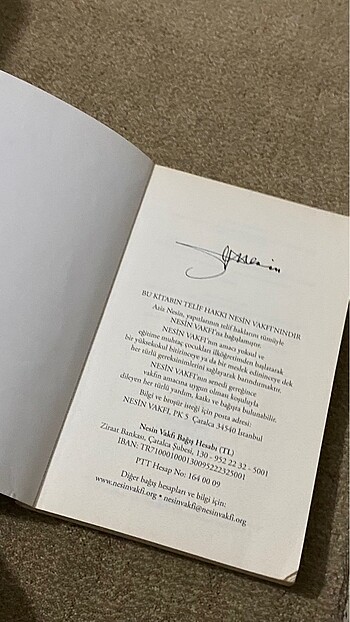 Nesin
BU KİTABIN TELİF HAKKI NESİN VAKFI'NINDIR
Aziz Nesin, yapıtlarının telif haklarını tümüyle
NESİN VAKFI'na bağışlamıştır.
NESİN VAKFI'nın amacı yoksul ve
eğitime muhtaç çocukları ilköğretimden başlatarak
bir yüksekokul bitirinceye ya da bir meslek edininceye dek
her türlü gereksinimlerini sağlayarak barındırmaktır.
NESİN VAKFI'nın senedi gereğince
vakfın amacına uygun olması koşuluyla
dileyen her türlü yardım, katkı ve bağışta bulunabilir.
Bilgi ve broşür isteği için posta adresi:
NESİN VAKFI, PK 5 Çatalca 34540 İstanbul
Nesin Vakfı Bağış Hesabı (TL)
Ziraat Bankası, Çatalca Şubesi, 130 - 952 22 32 - 5001
IBAN: TR710001000130095222325001
PTT Hesap No: 164 00 09
Diğer bağış hesapları ve bilgi için:
www.nesinvakfi.org • nesinvakfi@nesinvakfi.org